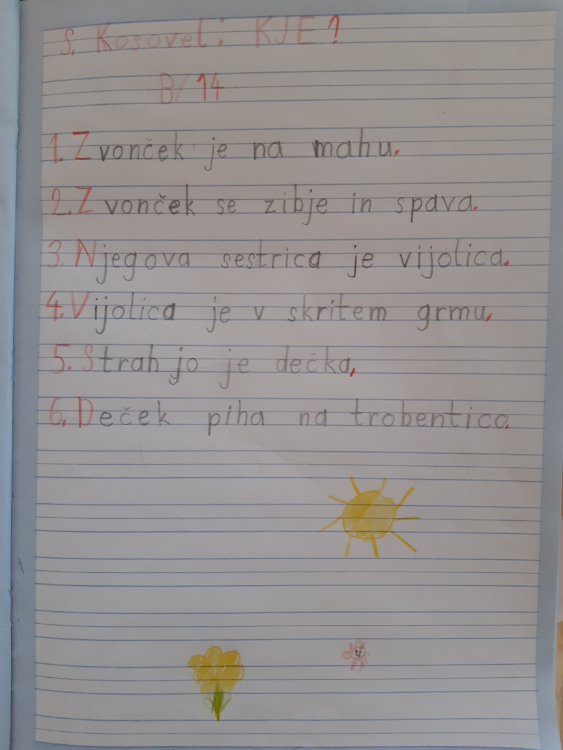 S. Kosovel: KJE?
B/14
1. Zvonček je na mahu.
2. Zvonček se zibje in spava.
3. Njegova sestrica je vijolica.
4. Vijolica je v skritem grmu.
5. Strah jo je dečka.
6. Deček piha na trobentico.